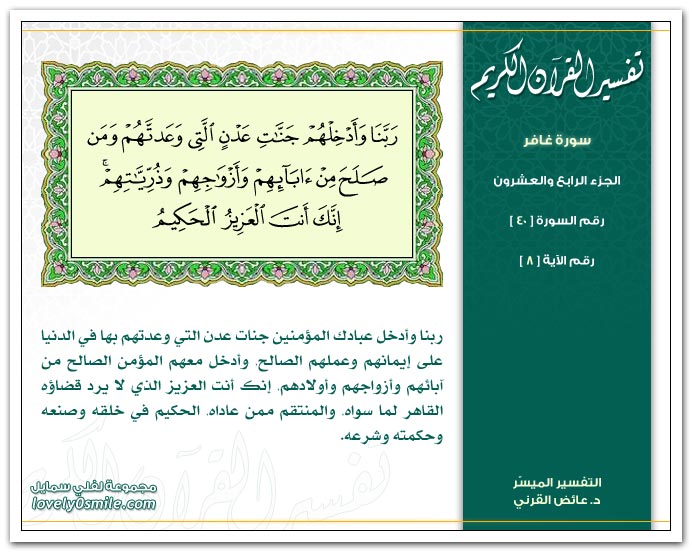 تفسير القرآن الكريم
سورة غافر
الجزء الرابع والعشرون
رقم السورة [ ٤٠ ]
رقم الآية [ ٨ ]
رَبَّنَا وَأَدْخِلْهُمْ جَنَّٰتِ عَدْنٍ ٱلَّتِى وَعَدتَّهُمْ وَمَن
صَلَحَ مِنْ ءَابَآئِهِمْ وَأَزْوَٰجِهِمْ وَذُرِّيَّٰتِهِمْ ۚ
إِنَّكَ أَنتَ ٱلْعَزِيزُ ٱلْحَكِيمُ
ربنا وأدخل عبادك المؤمنين جنات عدن التي وعدتهم بها في الدنيا
على إيمانهم وعملهم الصالح، وأدخل معهم المؤمن الصالح من
آبائهم وأزواجهم وأولادهم، إنك أنت العزيز الذي لا يرد قضاؤه
القاهر لما سواه، والمنتقم ممن عاداه، الحكيم في خلقه وصنعه
وحكمته وشرعه.
تفسير القرآن الكريم
التفسير الميسّر
د. عائض القرني
مجموعة لفلي سمايل
lovely0smile.com